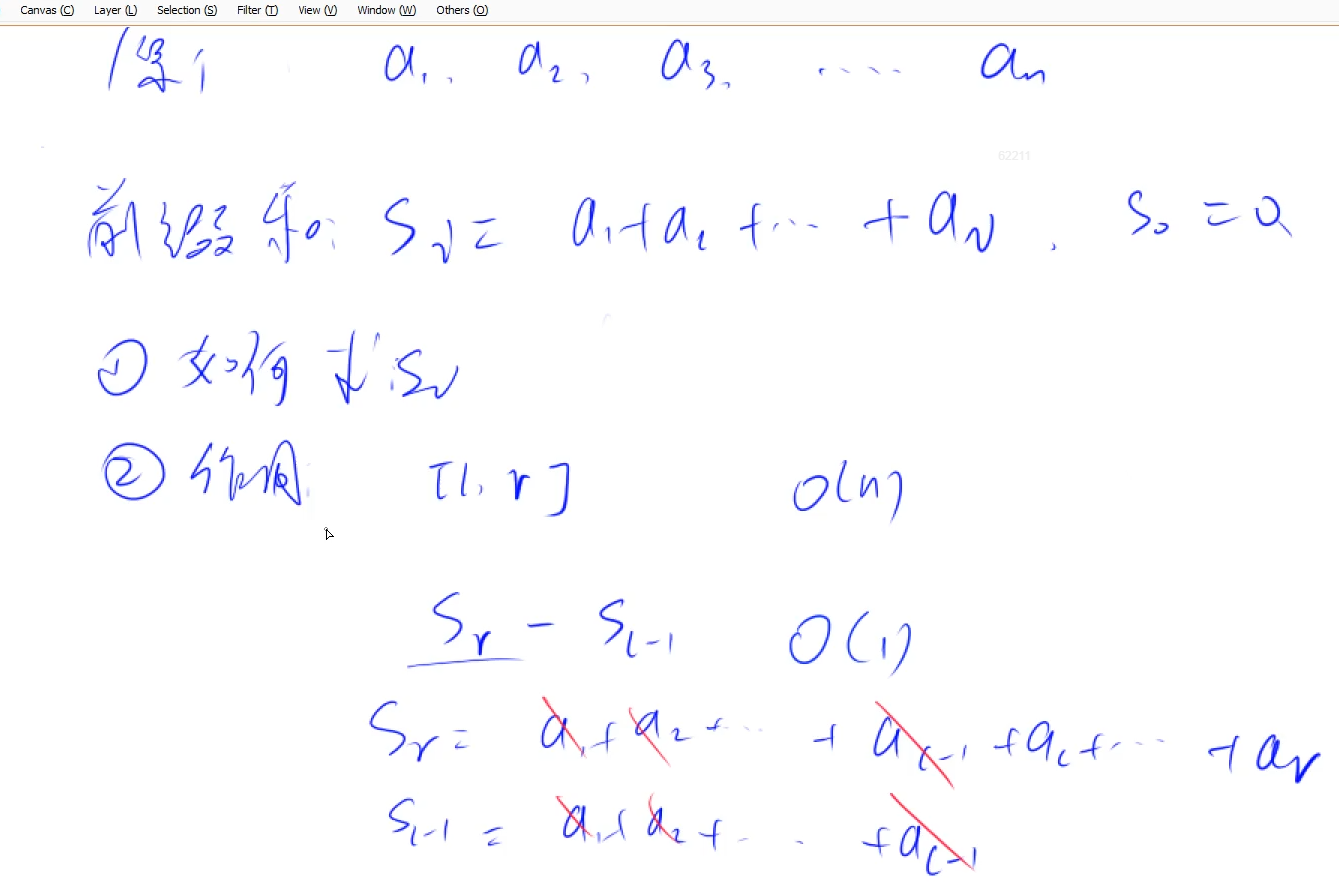 Canvas (C) Layer (L) Selection (S) Filter (T) View (V) Window (W) Others (O)
a₁, a₂, a₃, ..... aₙ
62211
前缀和: Sᵢ = a₁+a₂+...+aᵢ, S₀=0
① 如何求Sᵢ
② 作用: [l, r] O(n)
Sᵣ - Sₗ₋₁ O(1)
Sᵣ = a₁+a₂+...+aₗ₋₁+aₗ+...+aᵣ
Sₗ₋₁ = a₁+a₂+...+aₗ₋₁